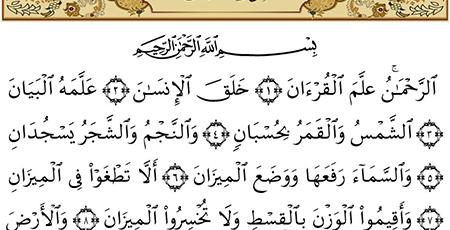 بِسْمِ ٱللَّهِ ٱلرَّحْمَٰنِ ٱلرَّحِيمِ
ٱلرَّحْمَـٰنُ عَلَّمَ ٱلْقُرْءَانَ ﴿١﴾ خَلَقَ ٱلْإِنسَـٰنَ ﴿٢﴾ عَلَّمَهُ ٱلْبَيَانَ
﴿٣﴾ ٱلشَّمْسُ وَٱلْقَمَرُ بِحُسْبَانٍ ﴿٤﴾ وَٱلنَّجْمُ وَٱلشَّجَرُ يَسْجُدَانِ
﴿٥﴾ وَٱلسَّمَآءَ رَفَعَهَا وَوَضَعَ ٱلْمِيزَانَ ﴿٦﴾ أَلَّا تَطْغَوْا۟ فِى ٱلْمِيزَانِ
﴿٧﴾ وَأَقِيمُوا۟ ٱلْوَزْنَ بِٱلْقِسْطِ وَلَا تُخْسِرُوا۟ ٱلْمِيزَانَ ﴿٨﴾ وَٱلْأَرْضَ